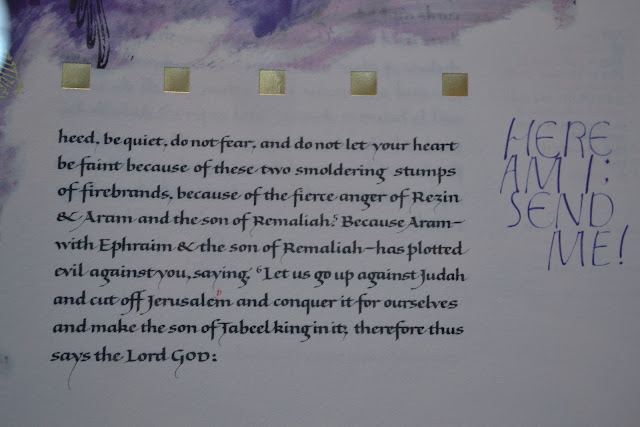 heed, be quiet, do not fear, and do not let your heart
be faint because of these two smoldering stumps
of firebrands, because of the fierce anger of Rezin
& Aram and the son of Remaliah. 5 Because Aram—
with Ephraim & the son of Remaliah—has plotted
evil against you, saying, 6 Let us go up against Judah
and cut off Jerusalem and conquer it for ourselves
and make the son of Tabeel king in it; therefore thus
says the Lord GOD:
HERE
AM I;
SEND
ME!